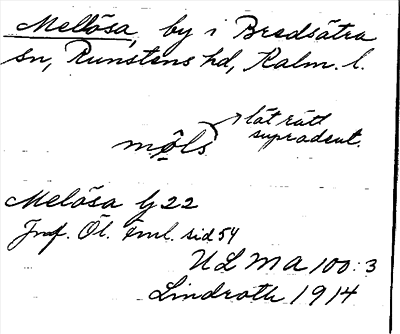 Mellösa, by i Bredsätra
sn, Runstens hd, Kalm. l.
lät rätt
supradent.
mǫ̂ls
Melösa by 22
Jnf. Öl. foml. sid 54
ULMA 100:3
Lindroth 1914